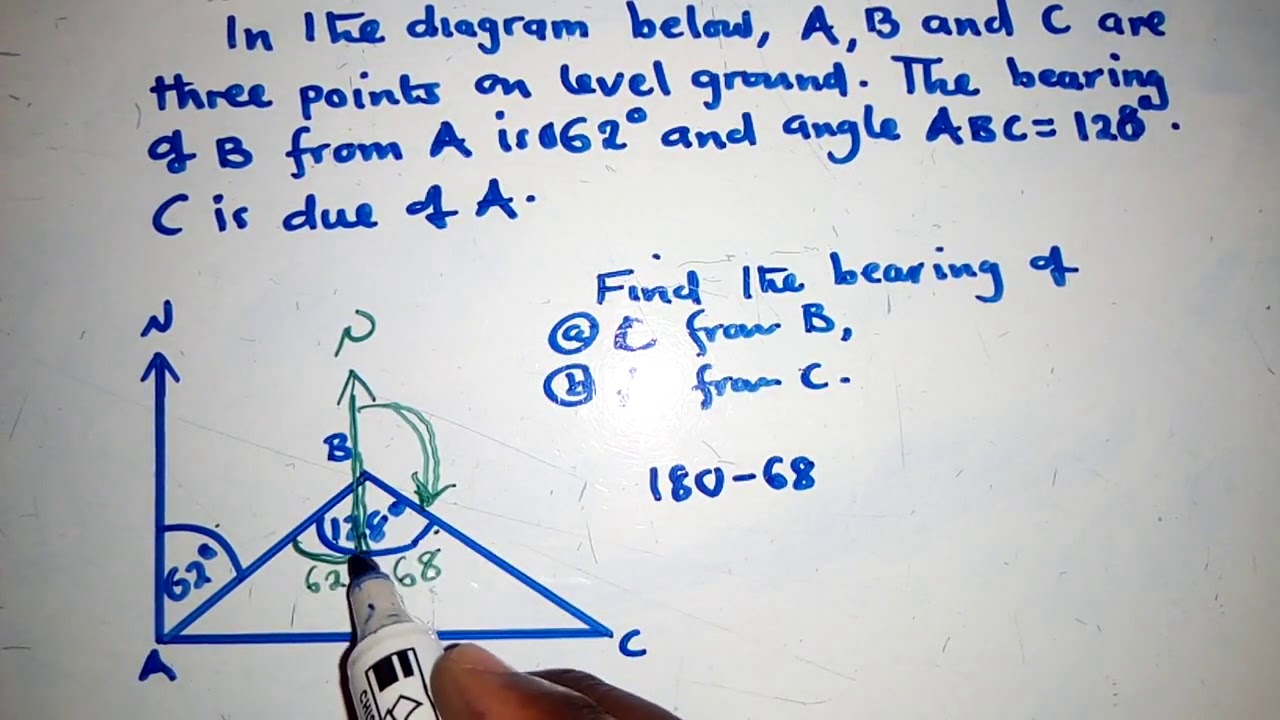 In the diagram below, A, B and C are
three points on level ground. The bearing
of B from A is 062° and angle ABC = 128°.
C is due of A.
Find the bearing of
(a) C from B,
(b) from C.
180-68
N
N
B
128°
62° 62 68
A C